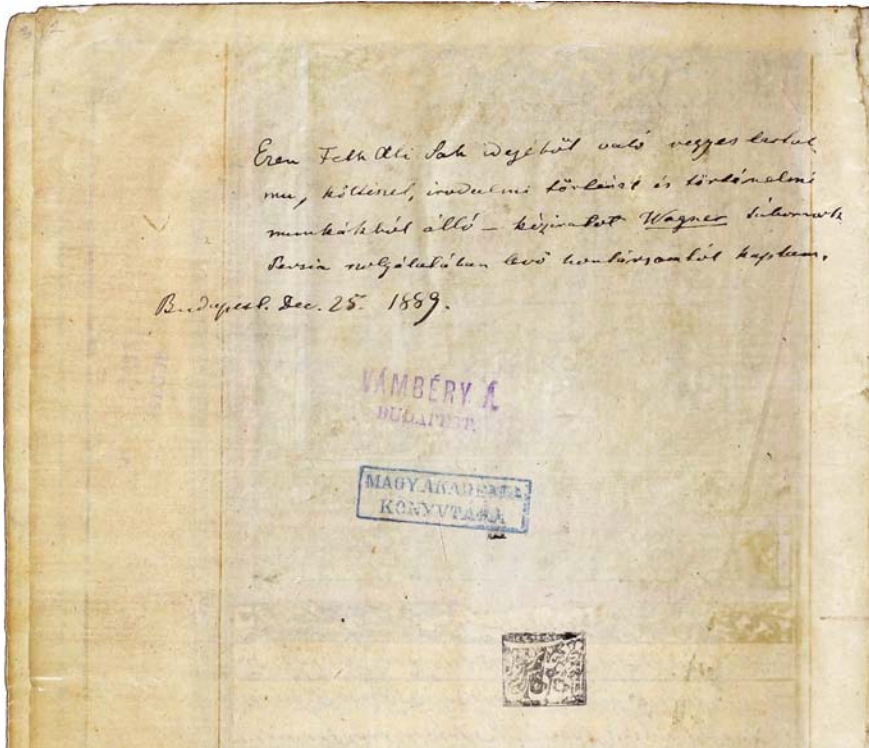 Ezen Feth Ali Sah idejéből való vegyes tartal
mu, költészet, irodalmi történet és történelmi
munkákból álló – kéziratot Wagner tábornok
Persia szolgálatában levő honfitársamtól kaptam.
Budapest. Dec. 25. 1889.
VÁMBÉRY Á.
BUDAPEST.
MAGY. AKADEMIA
KÖNYVTARA